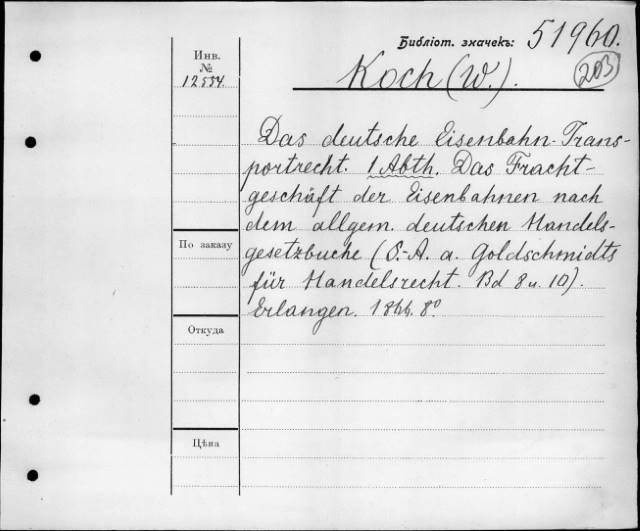 Библіот. значекъ: 51960.
Инв.
№
12534
203
Koch (W.).
Das deutsche Eisenbahn-Trans-
portrecht. 1 Abth. Das Fracht-
geschäft der Eisenbahnen nach
dem allgem. deutschen Handels-
gesetzbuche (S.-A. a. Goldschmidts
für Handelsrecht. Bd 8 u. 10).
Erlangen. 1866. 8°
По заказу
Откуда
Цѣна